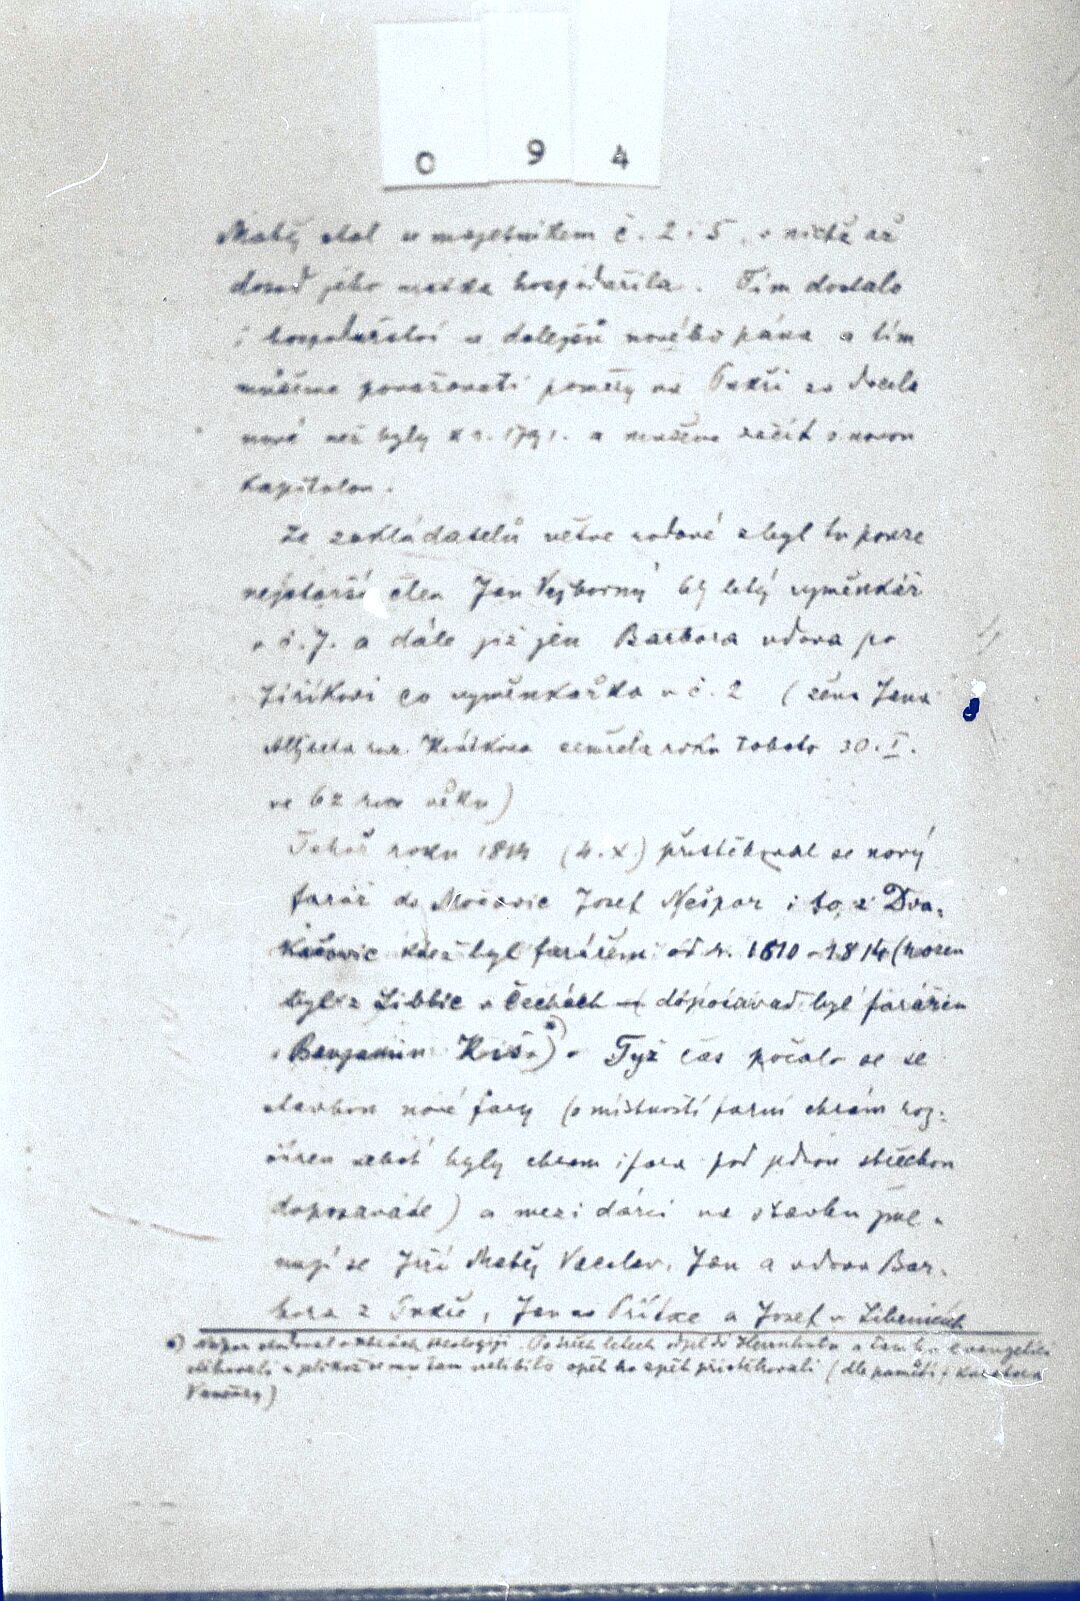 0 9 4
Matěj stal se majetníkem č. 2 i 5, v nichž až
dosud jeho matka hospodařila. Tím dostalo
i hospodářství v dalejší nového pána a tím
můžeme považovati poměry na Pukši za docela
nové než byly k r. 1791. a musíme začít s novou
kapitolou.
Ze zakládatelů větve rodové zbyl tu pouze
nejstarší člen Jan Vejborný letý vyměnkář
v č. 7. a dále již jen Barbora vdova po
Jiříkovi co vyměnkářka v č. 2 (žena Jana
Alžběta roz. zemřela roku tohoto 30. I.
ve 62 roce věku)
Tohož roku 1814 (4. X.) přistěhoval se nový
farář do Močovic Josef Nešpor i to z Dva-
kačovic kdež byl farářem od r. 1810 - 1814 (rozen
byl z Libbic v Čechách — doposavad byl farářem
Benjamin *) Týž čas počalo se se
stavbou nové fary (o místností farní chrám roz-
šířen neboť byly chrám i fara pod jednou střechou
doposavade) a mezi dárci na stavbu jme-
nují se Jiří Matěj Vaclav, Jan a vdova Bar-
bora z Pukše, Jan na Přítoce a Josef v Libenicích
*) studoval v theologii. Po letech odjel do Herrnhutu a tam ho evangelíci
a jelikož se mu tam nelíbilo opět ho zpět přistěhovali (dle pamětí Kurátora
Vančury)